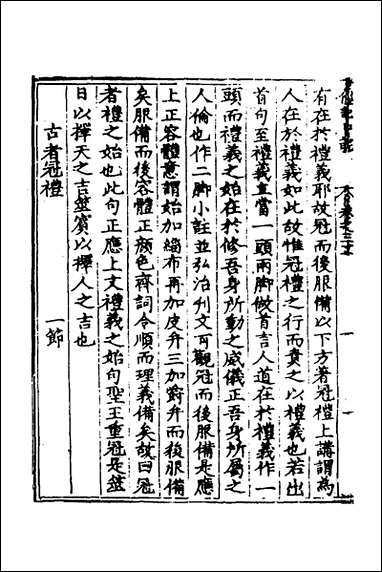 有在於禮義耶故冠而後服備以下方著冠禮上講謂為
人在於禮義如此故惟冠禮之行而責之以禮義也若出
首句至禮義立當一頭兩脚做首言人道在於禮義作一
頭而禮義之始在於修吾身所動之威儀正吾身所屬之
人倫也作二脚小註並弘治刋文可觀冠而後服備是應
上正容體意謂始加緇布再加皮弁三加爵弁而後服備
矣服備而後容體正顏色齊詞令順而理義備矣故曰冠
者禮之始也此句正應上文禮義之始句聖王重冠是筮
日以擇天之吉筮賓以擇人之吉也
古者冠禮 一節